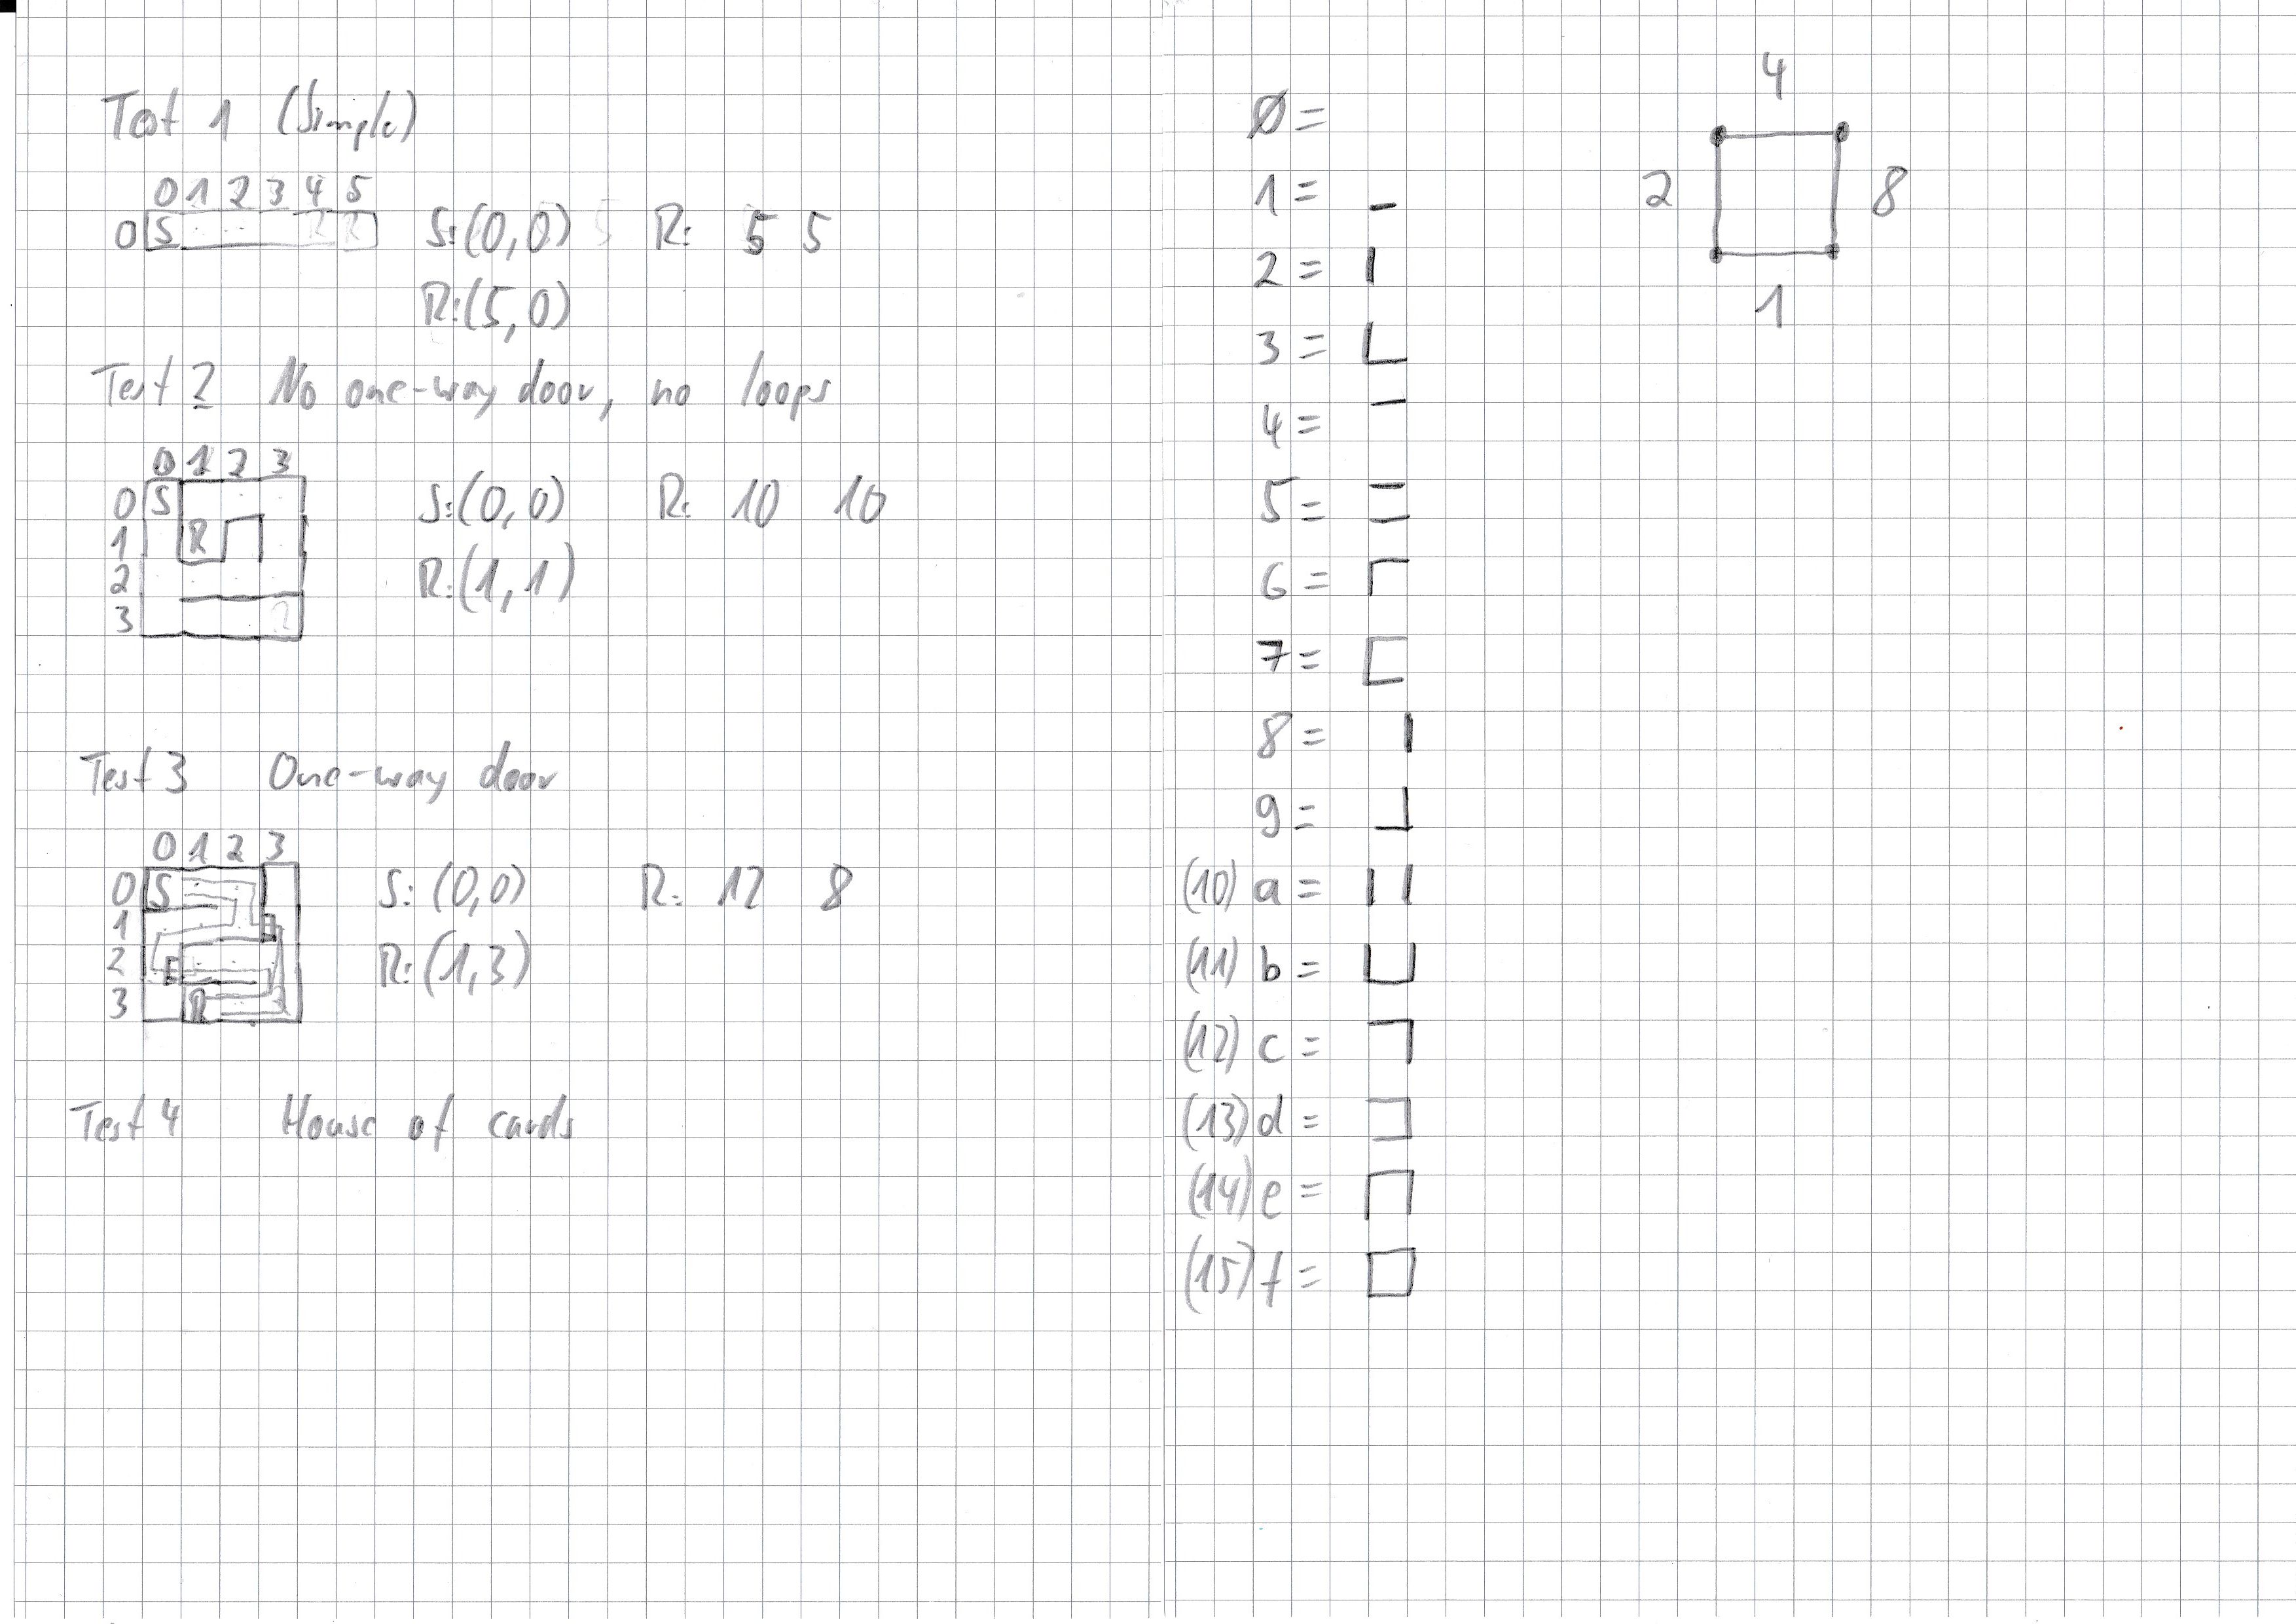 Test 1 (Simple)
0 1 2 3 4 5
0 S S:(0,0) R: 5 5
R:(5,0)
Test 2 No one-way door, no loops
0 1 2 3
0 S S:(0,0) R: 10 10
1 R
2 R:(1,1)
3
Test 3 One-way door
0 1 2 3
0 S S: (0,0) R: 12 8
1
2 E R:(1,3)
3 R
Test 4 House of cards
Ø =
1 =
2 =
3 =
4 =
5 =
6 =
7 =
8 =
9 =
(10) a =
(11) b =
(12) c =
(13) d =
(14) e =
(15) f =
4
2 8
1